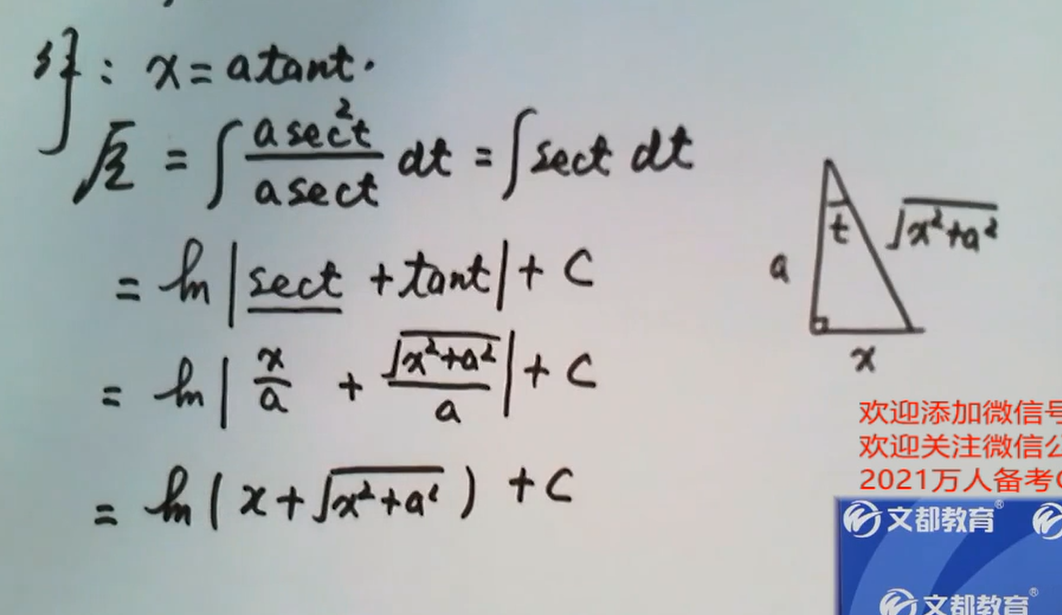 解: x = a tan t.
原 = ∫ (a sec²t)/(a sec t) dt = ∫ sec t dt
= ln |sec t + tan t| + C
= ln | x/a + √(x²+a²)/a | + C
= ln ( x + √(x²+a²) ) + C
t
√(x²+a²)
a
x
欢迎添加微信号
欢迎关注微信公
2021万人备考
文都教育®
文都教育®